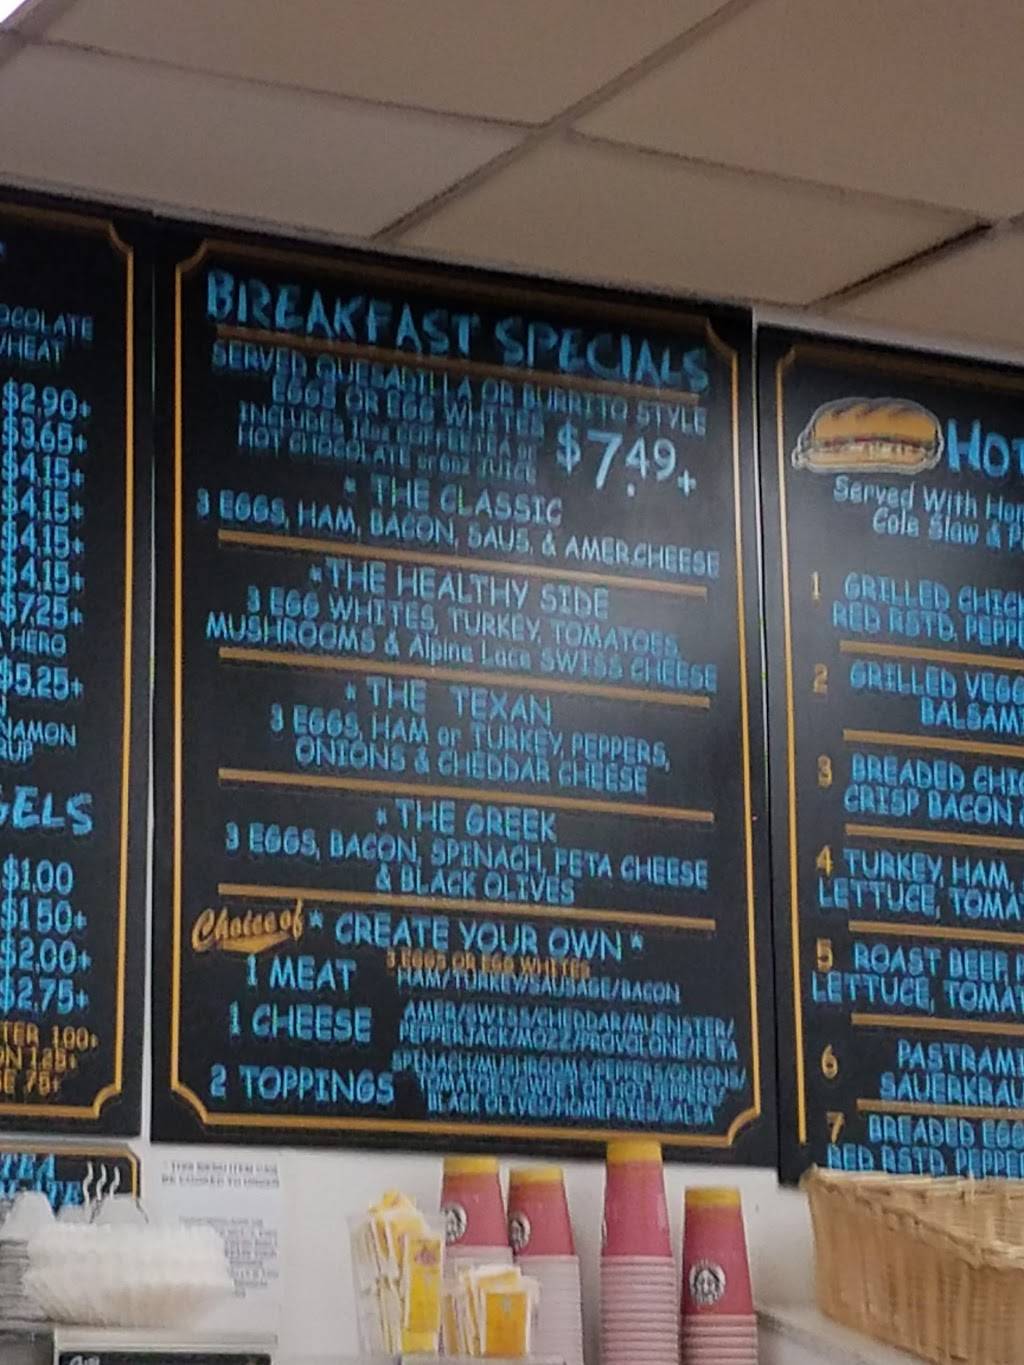 HEAT
$2.90+
$3.65+
$4.15+
$4.15+
$4.15+
$4.15+
$7.25+
HERO
$5.25+
GELS
$1.00
$1.50+
$2.00+
$2.75+
BREAKFAST SPECIALS
SERVED QUESADILLA OR BURRITO STYLE
EGGS OR EGG WHITES
INCLUDES 10oz COFFEE, TEA or
HOT CHOCOLATE or 6oz JUICE
$7.49+
* THE CLASSIC
3 EGGS, HAM, BACON, SAUS, & AMER.CHEESE
*THE HEALTHY SIDE
3 EGG WHITES, TURKEY, TOMATOES,
MUSHROOMS & Alpine Lace SWISS CHEESE
* THE TEXAN
3 EGGS, HAM or TURKEY, PEPPERS,
ONIONS & CHEDDAR CHEESE
* THE GREEK
3 EGGS, BACON, SPINACH, FETA CHEESE
& BLACK OLIVES
Choice of * CREATE YOUR OWN *
3 EGGS OR EGG WHITES
1 MEAT HAM/TURKEY/SAUSAGE/BACON
1 CHEESE AMER/SWISS/CHEDDAR/MUENSTER/
PEPPERJACK/MOZZ/PROVOLONE/FETA
2 TOPPINGS SPINACH/MUSHROOM/PEPPERS/ONIONS/
TOMATOES/SWEET OR HOT
BLACK OLIVES/HOMEFRIES/SALSA
HOT
Served With
Cole Slaw &
1 GRILLED
RED RSTD.
2 GRILLED
3 BREADED
CRISP BACON
4 TURKEY, HAM,
LETTUCE,
5 ROAST BEEF
LETTUCE,
6 PASTRAMI
7 BREADED
RED RSTD.